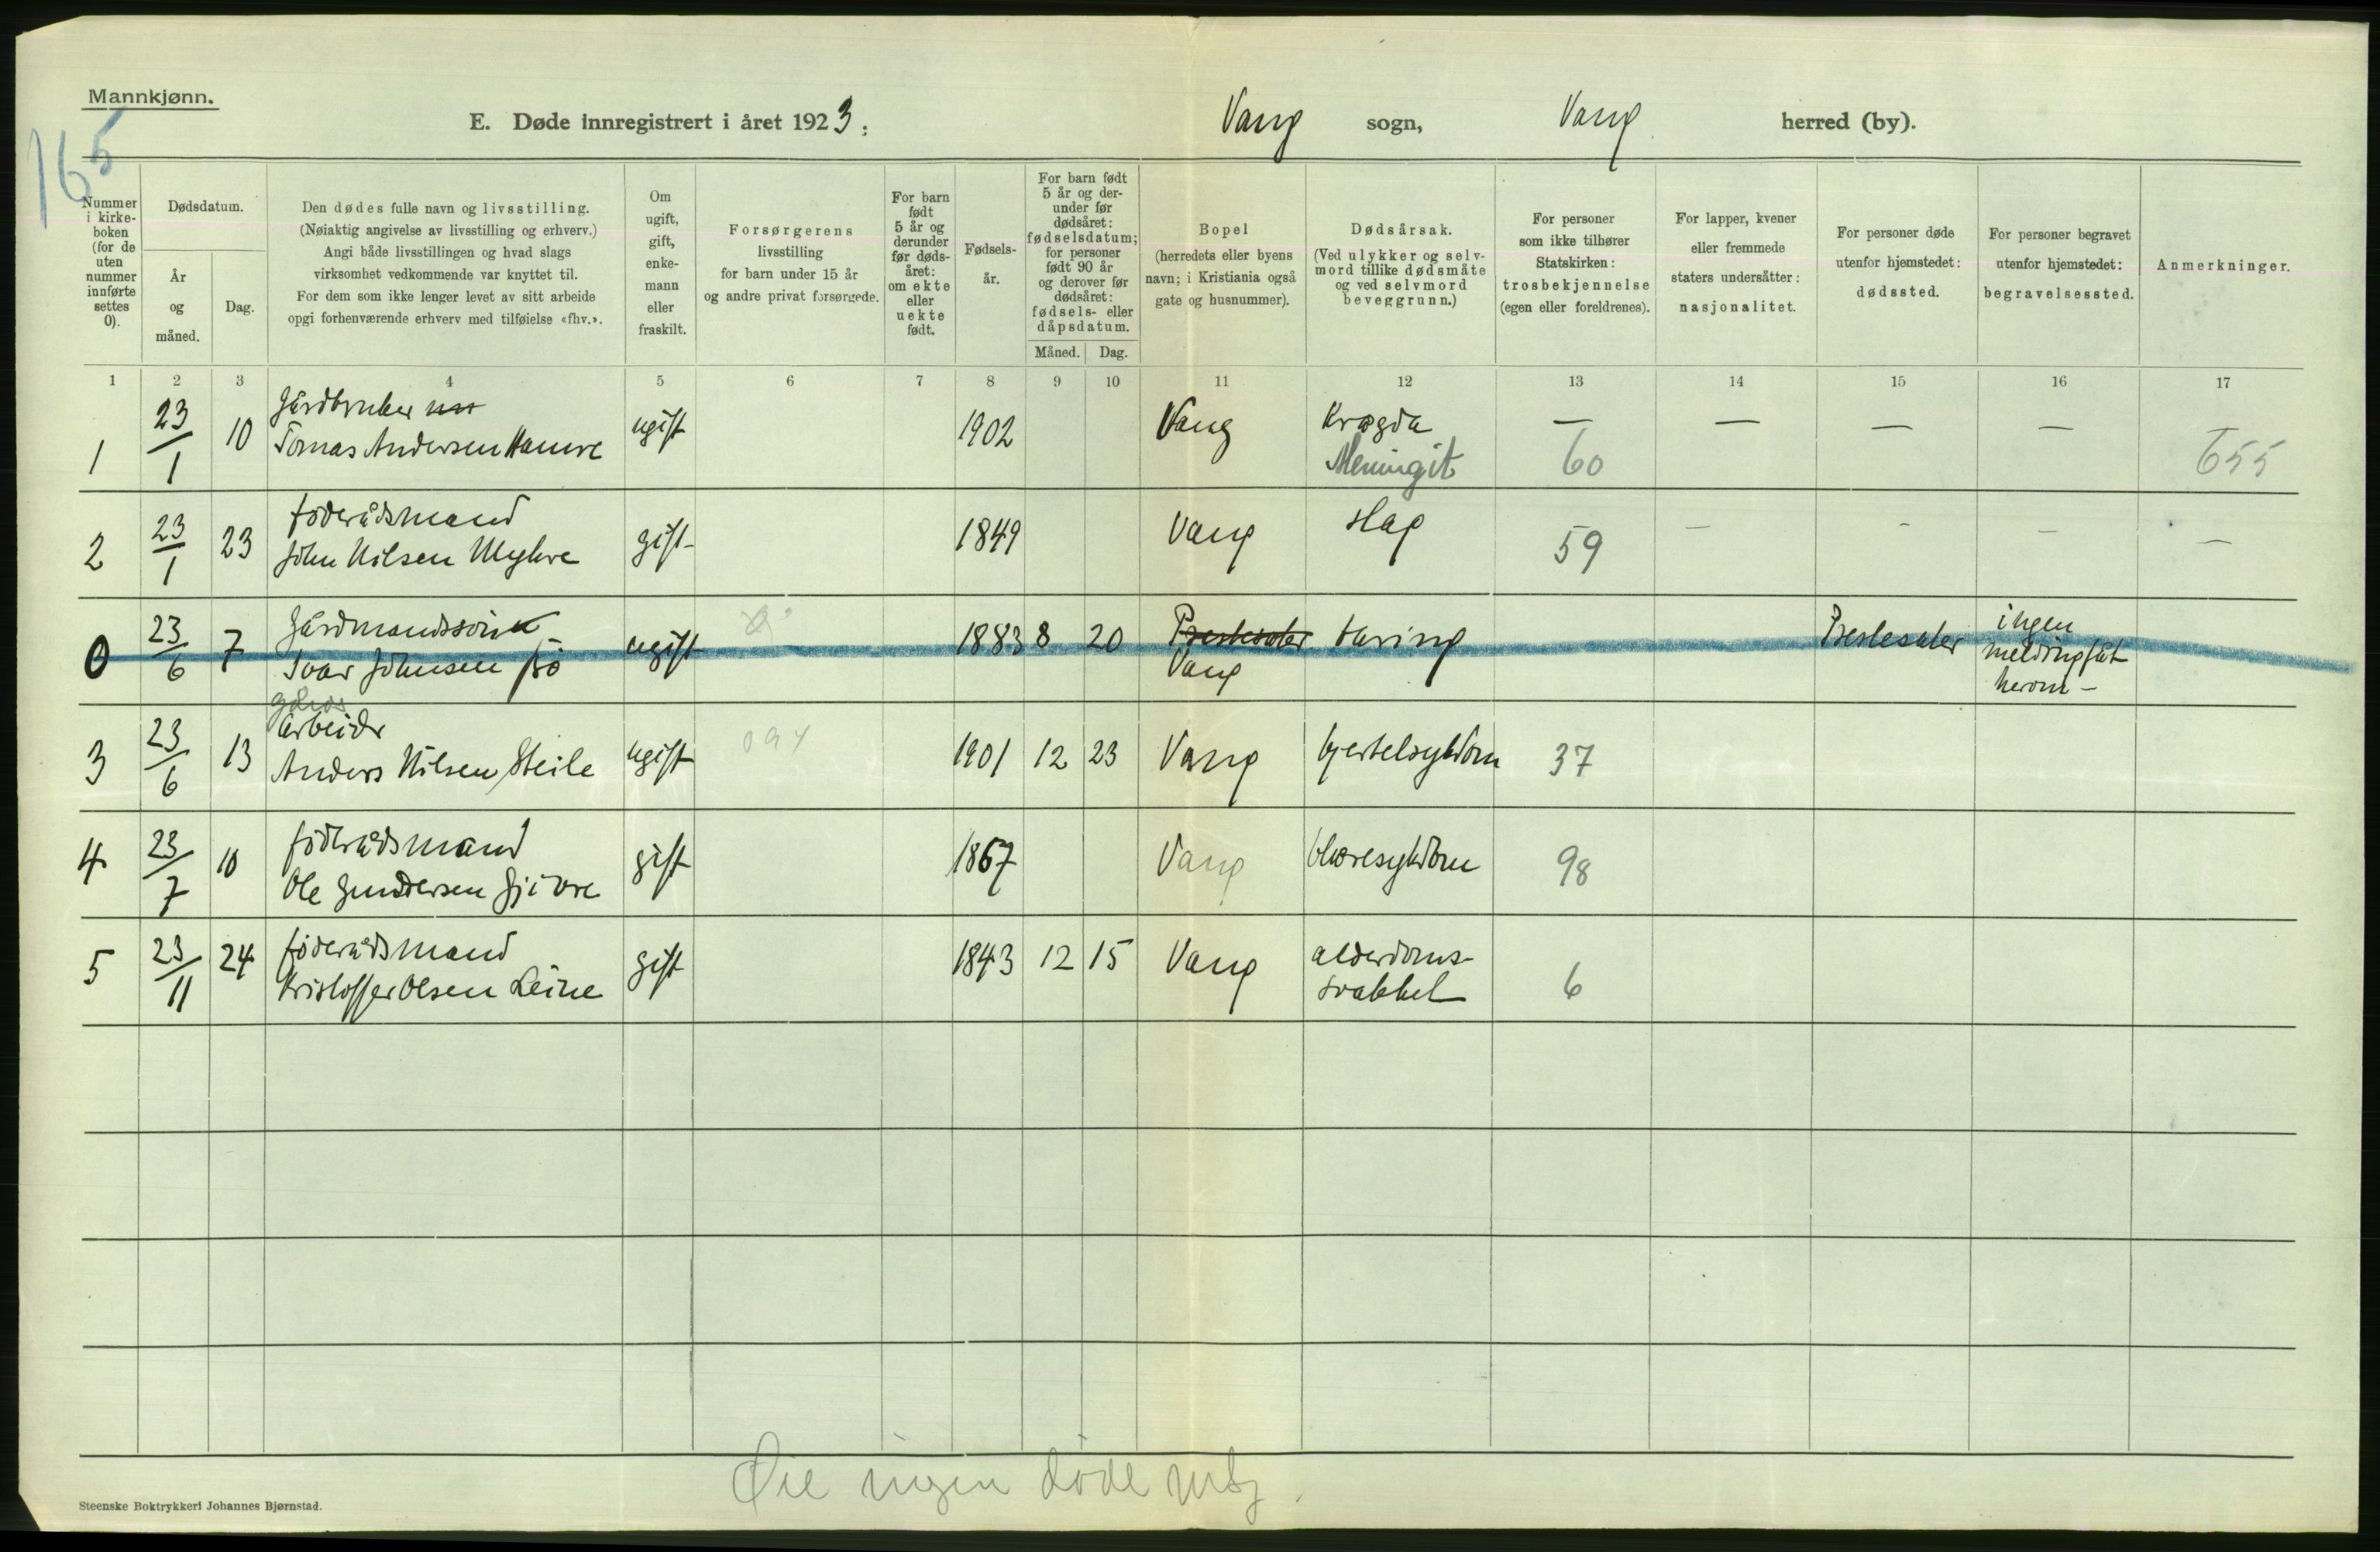 Mannkjønn.
165
E. Døde innregistrert i året 1923: Vang sogn, Vang herred (by).
Nummer i kirke-boken (for de uten nummer innførte settes 0).
Dødsdatum.
År og måned.
Dag.
Den dødes fulle navn og livsstilling.
(Nøiaktig angivelse av livsstilling og erhverv.)
Angi både livsstillingen og hvad slags
virksomhet vedkommende var knyttet til.
For dem som ikke lenger levet av sitt arbeide
opgi forhenværende erhverv med tilføielse «fhv.».
Om ugift, gift, enke-mann eller fraskilt.
Forsørgerens
livsstilling
for barn under 15 år
og andre privat forsørgede.
For barn født 5 år og derunder før døds-året: om ekte eller uekte født.
Fødsels-år.
For barn født 5 år og der-under før dødsåret: fødselsdatum; for personer født 90 år og derover før dødsåret: fødsels- eller dåpsdatum.
Måned. Dag.
Bopel
(herredets eller byens
navn; i Kristiania også
gate og husnummer).
Dødsårsak.
(Ved ulykker og selv-
mord tillike dødsmåte
og ved selvmord
beveggrunn.)
For personer
som ikke tilhører
Statskirken:
trosbekjennelse
(egen eller foreldrenes).
For lapper, kvener
eller fremmede
staters undersåtter:
nasjonalitet.
For personer døde
utenfor hjemstedet:
dødssted.
For personer begravet
utenfor hjemstedet:
begravelsessted.
Anmerkninger.
1 2 3 4 5 6 7 8 9 10 11 12 13 14 15 16 17
1 23/1 10 Gårdbruker
Tomas Andersen Hamre ugift 1902 Vang Krægda — — — — —
Meningit 60 655
2 23/1 23 føderådsmand
John Nilsen Myhre gift 1849 Vang slag 59 — - — —
0 23/6 7 Gårdmandssøn
Ivar Johnsen ugift 1883 8 20 Prestesæter Vang tæring Prestesæter ingen
meldning fåt
herom —
gdrds
3 23/6 13 arbeider
Anders Nilsen Steile ugift 094 1901 12 23 Vang hjertesykdom 37
4 23/7 10 føderådsmand
Ole Gundersen Gjevre gift 1867 Vang blæresykdom 98
5 23/11 24 føderådsmand
Kristoffer Olsen Leine gift 1843 12 15 Vang alderdoms-
svakhet 6
Øie ingen døde mkj.
Steenske Boktrykkeri Johannes Bjørnstad.